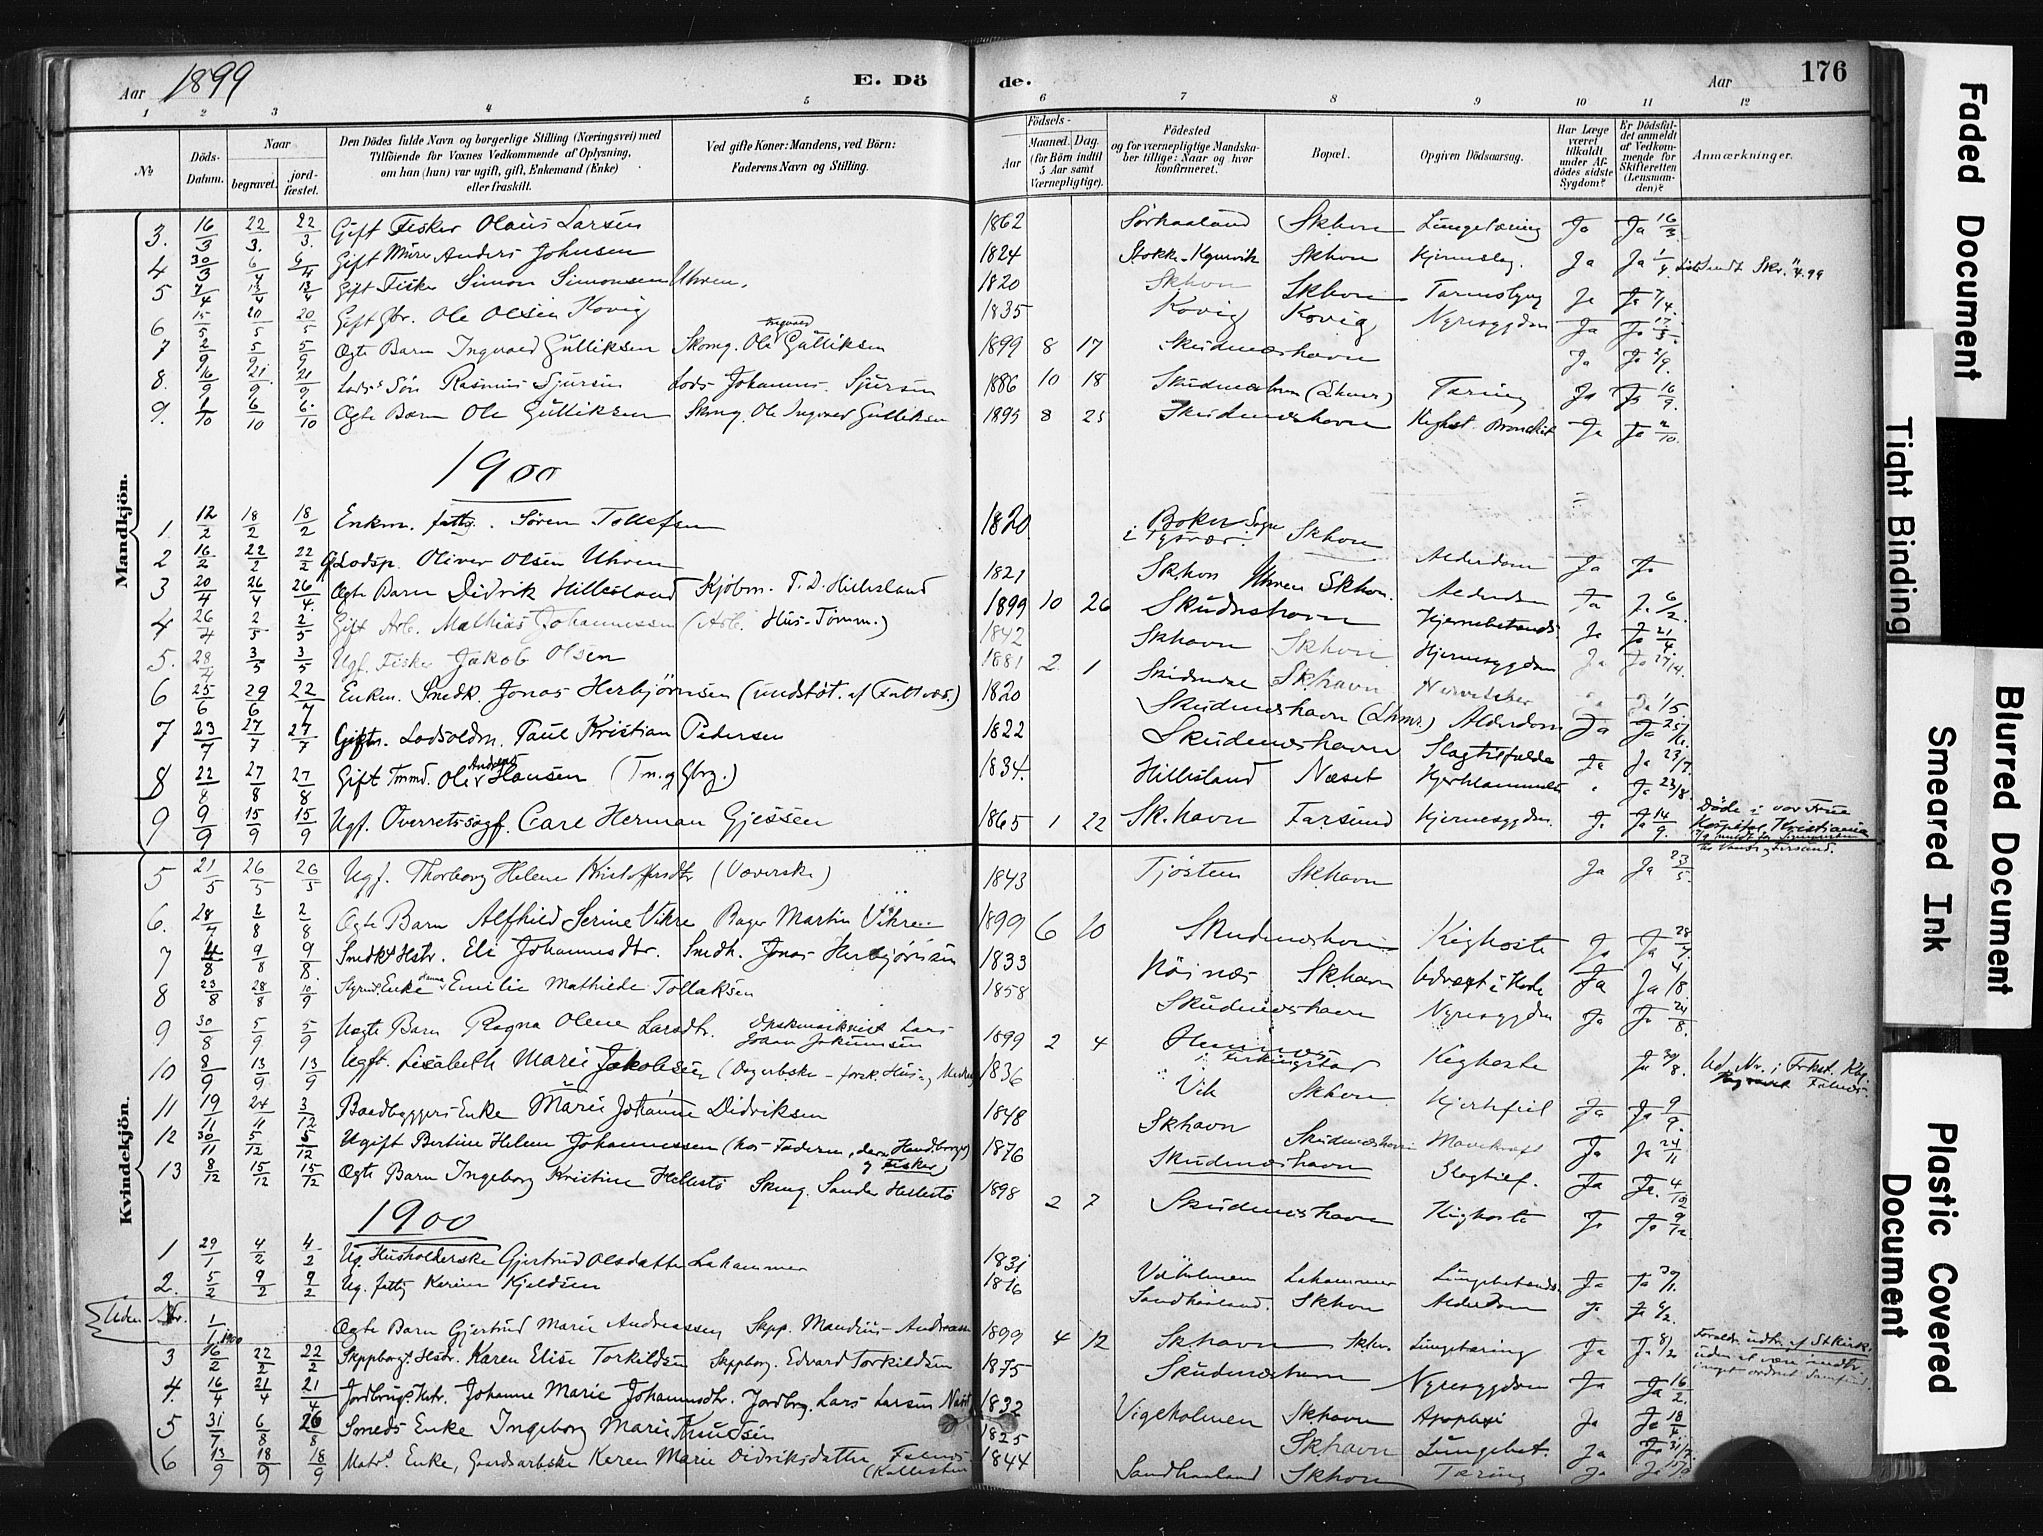 Aar 1899 E. Dö de. Aar 176
1 2 3 4 5 6 7 8 9 10 11 12
№
Döds-Datum.
Naar
begravet.
jord-fæstet.
Den Dödes fulde Navn og borgerlige Stilling (Næringsvei) med
Tilföiende for Voxnes Vedkommende af Oplysning,
om han (hun) var ugift, gift, Enkemand (Enke)
eller fraskilt.
Ved gifte Koner: Mandens, ved Börn:
Faderens Navn og Stilling.
Födsels-
Aar
Maaned. Dag.
(for Börn indtil
5 Aar samt
Værnepligtige).
Födested
og for værnepligtige Mandska-
ber tillige: Naar og hvor
konfirmeret.
Bopæl.
Opgiven Dödsaarsag.
Har Læge
været
tilkaldt
under Af-
dödes sidste
Sygdom?
Er Dödsfal-
det anmeldt
af Vedkom-
mende for
Skifteretten
(Lensman-
den)?
Anmærkninger.
Mandkjön.
3. 16/3 22/3. 22/3. Gift Fisker Olaus Larsen 1862 Sørhaaland Skhavn Lungetæring Ja Ja 16/3
4 30/3 6/4 6/4 Gift Murer Anders Johnsen 1824 Skhavn Hjerneslag. Ja Ja 1/4
5 7/4 13/4 13/4 Gift Fisker Simon Simonsen Uhren. 1820 Skhavn Skhavn Ja Ja 7/4.
6 15/5 20/5 20/5 Gift Gbr. Ole Olsen Kovig 1835 Kovig Kovig Nyresygdom Ja Ja 17/5.
7 2/9 5/9 5/9 Ægte Barn Ingvald Gulliksen Skomg. Ole Ingvald Gulliksen 1899 8 17 Skudeneshavn Ja Ja 2/9.
8. 16/9 21/9. 21/9 Lods's Søn Rasmus Sjursen Lods Johannes Sjursen 1886 10 18 Skudeneshavn Tæring Ja Ja 16/9.
9. 1/10 6/10 6/10 Ægte Barn Ole Gulliksen Skomg. Ole Ingvald Gulliksen 1895 8 25 Skudeneshavn Kighst. Bronchit Ja Ja 2/10.
1900
1. 12/2 18/2 18/2 Enkm. fattig. Søren Tollefsen 1820. Bokn Sogn i Tysvær. Skhavn Alderdom Ja Ja
2 16/2 22/2 22/2 Lodsp. Oliver Olsen Uhren 1821 Skhvn Uhren Skhvn. Alderdom Ja Ja 6/2.
3 20/4 26/4 26/4. Ægte Barn Didrik Hillesland Kjøbm. T. D. Hillesland 1899 10 26 Skudeneshavn Hjernebetænds. Ja Ja 21/4
4 26/4 2/5 2/5 Gift Arb. Mathias Johannessen (Arb. Hus-Tømm.) 1842 Skhavn Skhvn Hjernesygdom Ja Ja 27/4.
5. 28/4 3/5 3/5 Ugf. Fisker Jakob Olsen 1881 2 1 Skhavn 1/5
6 25/6 29/6 22/7 Enkm. Smedk. Jonas Herbjørnsen (understøt. af Fattigvæs.) 1820 Skudeneshavn Alderdom Ja Ja 25/6.
7 23/7 27/7 27/7 Giftm. Lodsoldm. Paul Kristian Pedersen 1822 Skudeneshavn Slagtilfælde Ja Ja 23/7.
8 22/8 27/8 27/8 Gift Tmmd. Ole Andreas Hansen (Tm. og Gbrg.) 1834. Hillesland Næset Ja 23/8.
9 9/9 15/9 15/9 Ugf. Overretssagf. Carl Herman Gjessen 1865 1 22 Sk.havn Farsund Hjernesygdom. Ja Ja 14/9. Døde i vor Frue
Hospital, Kristiania
Kvindekjön.
5 21/5 26/5 26/5 Ugf. Thorborg Helene Kristoffersdtr (Væverske) 1843 Tjøsten Skhavn Ja Ja 23/5.
6. 28/7 2/8 2/8 Ægte Barn Alfhild Serine Vikre Bager Martin Vikre 1899 6 20 Skudeneshavn Kighoste Ja Ja 28/7
7 4/8 9/8 9/8. Smedks Hstr. Eli Johannesdtr. Smedk. Jonas Herbjørnsen 1833 Nøinæs Skhavn Ja Ja 4/8
8 23/8 28/8 10/9 Enke Emilie Mathilde Tollaksen 1858 Skudeneshavn Nyresygdom Ja Ja 24/8.
9 30/8 5/9 5/9 Uægte Barn Ragna Olene Larsdtr. 1899 2 4 Kighoste Ja 30/8.
10 8/9 13/9 13/9 Ugft. Lisabeth Marie Jakobsen 1836 Vik Skhavn Hjertefeil Ja Ja 9/9.
11 19/11 24/11 3/12 Baadbyggers Enke Marie Johanne Didriksen 1848 Skhavn Skudeneshavn Ja Ja 24/11
12 30/11 5/12 5/12 Ugift Bertine Helene Johannessen (hos Faderen, og Fisker) 1876 Skudeneshavn Slagtilf. Ja Ja. 4/12
13 8/12 15/12 15/12 Ægte Barn Ingeborg Kristine Hellestø Skmg. Sander Hellestø 1898 2 7 Skudeneshavn Kighoste Ja Ja 9/12
1900
1 29/1 4/2 4/2 Ug. Husholderske Gjertrud Olsdatter Lahammer 1831 Lahammer Lungebetænds. Ja Ja 30/1.
2. 5/2 9/2 9/2 Ug. fattig Karine Kjeldsen 1816 Sandhaaland. Skhvn Alderdom Ja Ja 6/2.
Uden Nr. 1/1 1900 Ægte Barn Gjertrud Marie Andreassen Skpp. Mandrius Andreassen 1899 4 12 Skhavn Skhvn Lungetæring Ja Ja 8/2
3 16/2 22/2 22/2 Skppborgs Hstr. Karen Elise Torkildsen Skppborg. Edvard Torkildsen 1875 Skudeneshavn Nyresygdom Ja Ja 16/2.
4. 16/4 21/4 21/4 Jordbrugs Hstr. Johanne Marie Johannesdtr. Jordbrg. Lars Larsen Næset 1832 Vigeholmen Skhavn Apoplexi Ja Ja 18/4.
5 31/7 6/8 26/8 Smeds Enke Ingeborg Marie Knudsen 1825 Skhavn Lungebet. Ja Ja 31/7.
6 13/9 18/9 18/9 Matrs Enke, Gaardsarbske Karen Marie Didriksdatter 1844 Sandhaaland Skhvn Tæring Ja Ja
Faded Document
Tight Binding
Blurred Document
Smeared Ink
Plastic Covered
Document